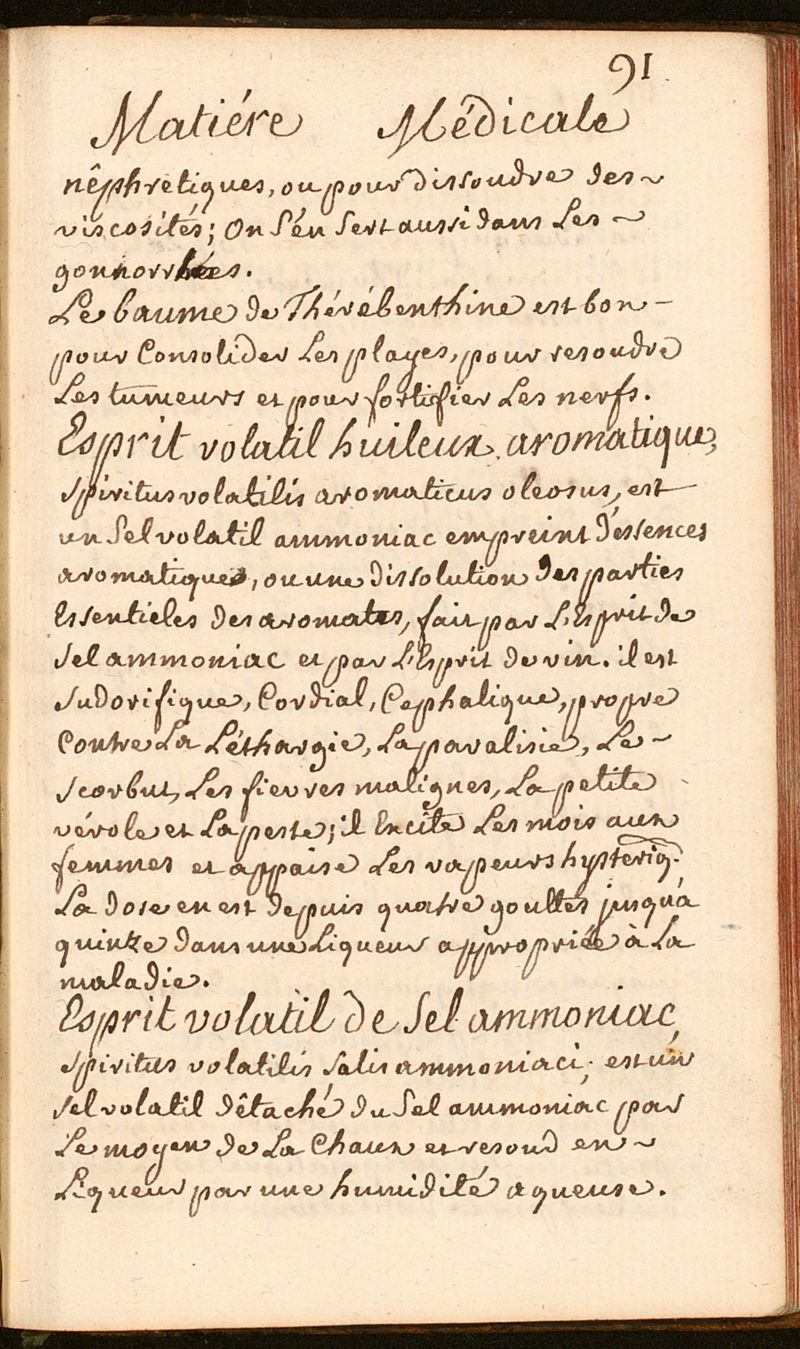 91
Matiére Médicale
nêphretiques, ou pour dissoudre des~
viscosités; On s'én sert aussi dans Les~
gonnorrhées.
Le baume de Thérébenthine est bon-
pour Consolider Les playes, pour resoudre
Les tumeurs et pour fortifier Les nerfs.
Esprit volatil huileux aromatique,
Spiritus volatilis aromaticus oleosus, est
un Sel volatil ammoniac empreint d'éssences
aromatiques, ou une dissolution des parties
Essentieles des aromates, fait par L'Esprit de
Sel ammoniac et par L'Esprit de vin. il est
Sudorifique, Cordial, Cephalique, propre
Contre La Léthargie, La paralisie, Le~
scorbut, Les fievres malignes, La petite
vérole et La peste; il Excite Les mois aux
femmes et appaise Les vapeurs hysteriq.
La dose en est depuis quatre gouttes jusqu'à
quinze dans une Liqueur appropriée à La
maladie.
Esprit volatil de Sel ammoniac,
Spiritus volatilis Salis ammoniaci; est un
Sel volatil dêtaché du Sel ammoniac par
Le moyen de La Chaux et resoud en~
Liqueur par une humidité aqueuse.